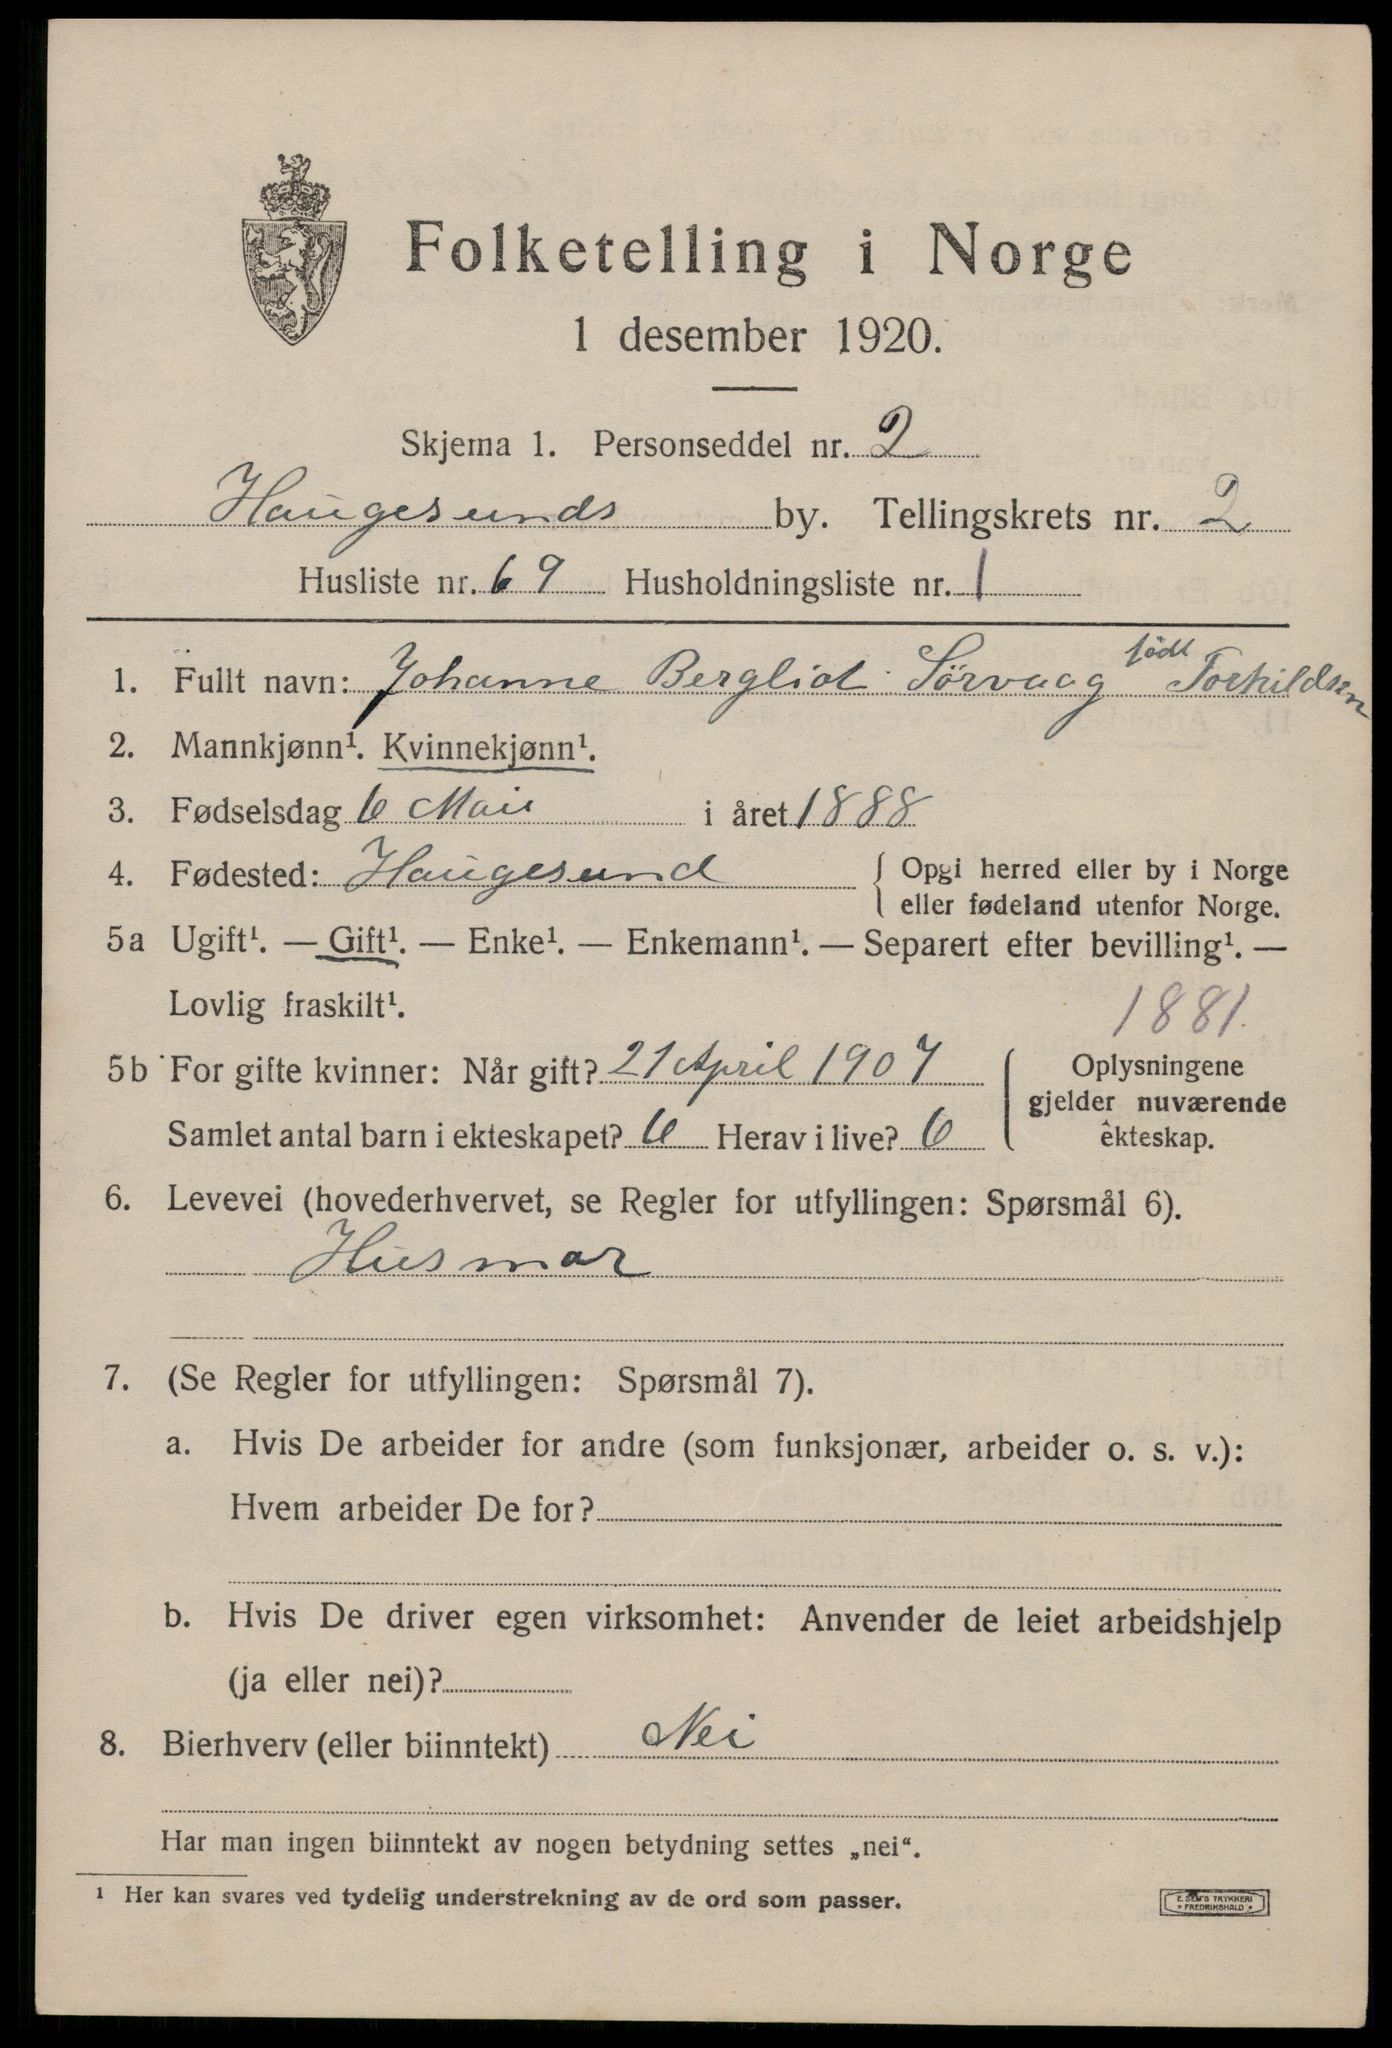 Folketelling i Norge
1 desember 1920.
Skjema 1. Personseddel nr. 2
Haugesunds by. Tellingskrets nr. 2
Husliste nr. 69 Husholdningsliste nr. 1
1. Fullt navn: Johanne Bergliot Sörvaag født Torkildsen
2. Mannkjønn¹. Kvinnekjønn¹.
3. Fødselsdag 6 Mai i året 1888
4. Fødested: Haugesund { Opgi herred eller by i Norge
eller fødeland utenfor Norge.
5a Ugift¹. — Gift¹. — Enke¹. — Enkemann¹. — Separert efter bevilling¹. —
Lovlig fraskilt¹.
1881
5b For gifte kvinner: Når gift? 21 April 1907
Samlet antal barn i ekteskapet? 6 Herav i live? 6
Oplysningene
gjelder nuværende
ekteskap.
6. Levevei (hovederhvervet, se Regler for utfyllingen: Spørsmål 6).
Husmor
7. (Se Regler for utfyllingen: Spørsmål 7).
a. Hvis De arbeider for andre (som funksjonær, arbeider o. s. v.):
Hvem arbeider De for?
b. Hvis De driver egen virksomhet: Anvender de leiet arbeidshjelp
(ja eller nei)?
8. Bierhverv (eller biinntekt) Nei
Har man ingen biinntekt av nogen betydning settes „nei“.
¹ Her kan svares ved tydelig understrekning av de ord som passer.
E. SEM'S TRYKKERI
* FREDRIKSHALD *